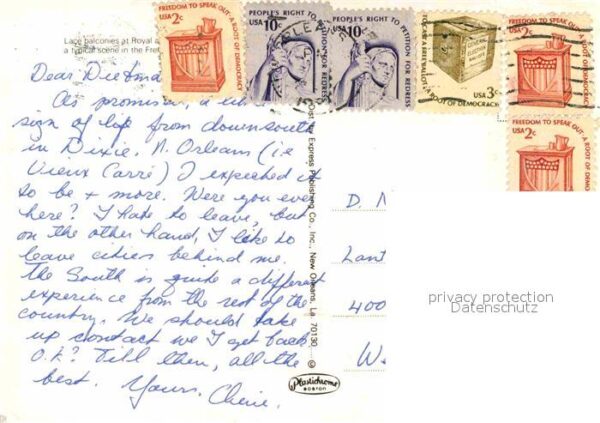 Lace balconies at Royal a
a typical scene in the Fre
FREEDOM TO SPEAK OUT-A ROOT OF DEMOCRACY
USA 2c
PEOPLE'S RIGHT TO PETITION FOR REDRESS
USA 10c
PEOPLE'S RIGHT TO PETITION FOR REDRESS
USA 10c
A FREE BALLOT
ROOT OF DEMOCRACY
USA 3c
FREEDOM TO SPEAK OUT-A ROOT OF DEMOCRACY
USA 2c
FREEDOM TO SPEAK OUT-A ROOT OF DEMOC
USA 2c
Dear Dietma
As promised, a
sign of life from downsouth
in Dixie. N. Orleans (i.e
Vieux Carré) I expected it
to be + more. Were you ever
here? I hate to leave, but
on the other hand, I like to
leave cities behind me.
The South is quite a different
experience from the rest of the
country. We should take
up contact we I get back
O.K? Till then, all the
best.
Yours, Cherie.
Express Publishing Co., Inc., New Orleans, La 70130 ©
Plastichrome
BOSTON
D. N
Lant
400
W
privacy protection
Datenschutz